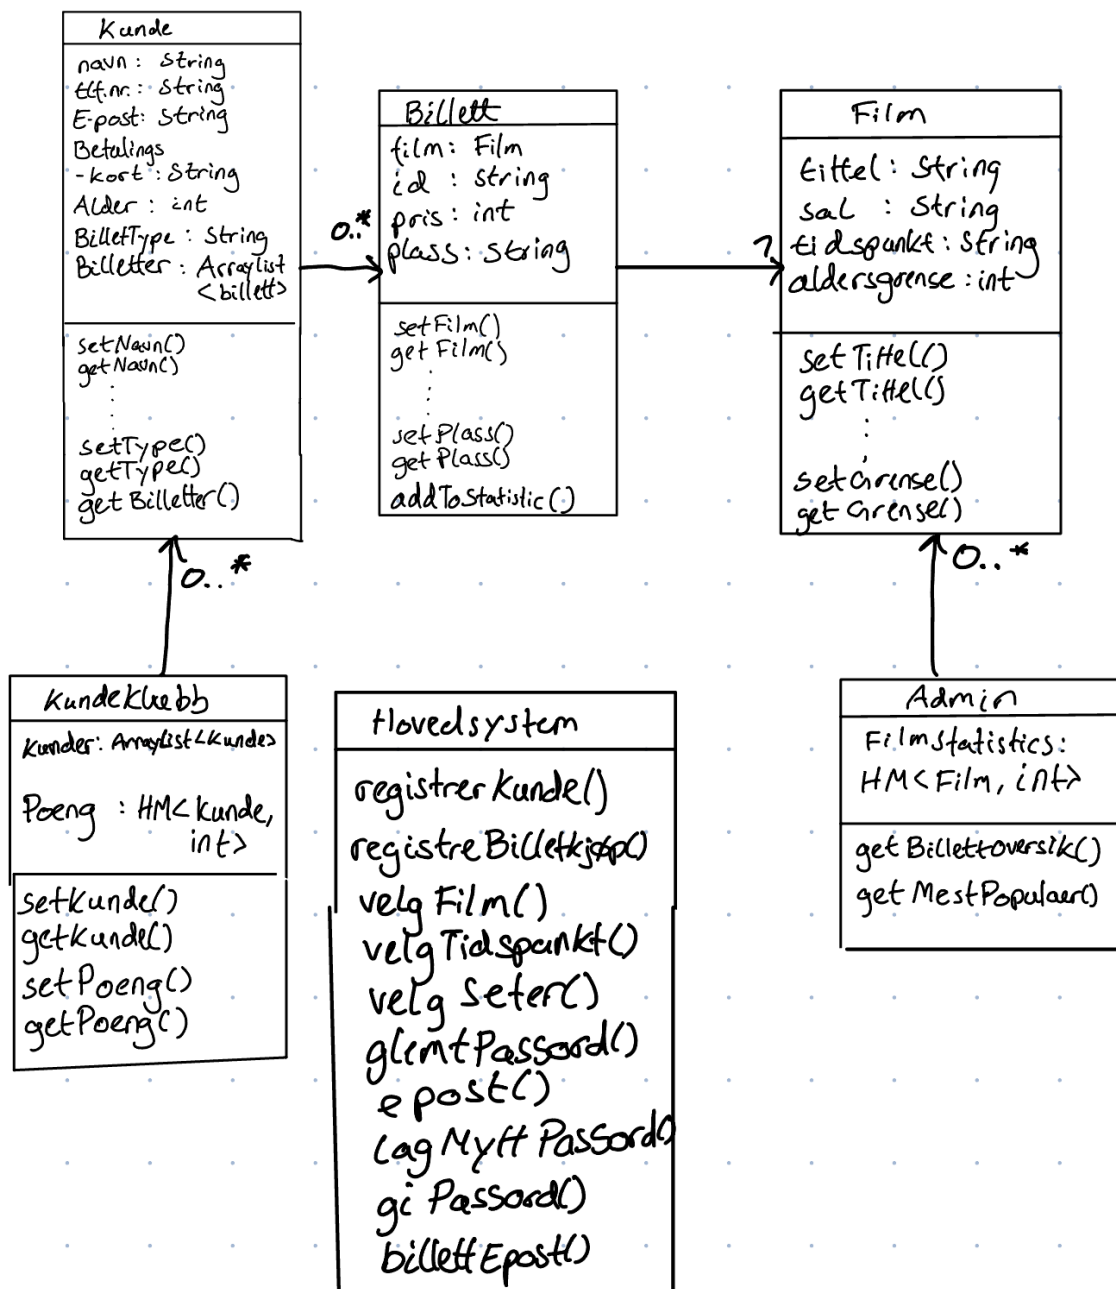 Kunde
navn : String
tlf.nr. : String
E-post: String
Betalings
-kort : String
Alder : int
BilletType : String
Billetter : Arraylist
<billett>
setNavn()
getNavn()
setType()
getType()
getBilletter()
0..*
Billett
film : Film
id : string
pris : int
plass : String
setFilm()
getFilm()
setPlass()
getPlass()
addToStatistic()
?
Film
tittel : String
sal : String
tidspunkt : String
aldersgrense : int
setTittel()
getTittel()
setGrense()
getGrense()
0..*
0..*
Kundeklubb
Kunder: Arraylist<Kunde>
Poeng : HM<Kunde,
int>
setKunde()
getKunde()
setPoeng()
getPoeng()
Hovedsystem
registrerKunde()
registreBilletkjøp()
velgFilm()
velgTidspunkt()
velgSeter()
glemtPassord()
epost()
lagNyttPassord()
giPassord()
billettEpost()
Admin
FilmStatistics:
HM<Film, int>
getBillettoversik()
getMestPopulaer()